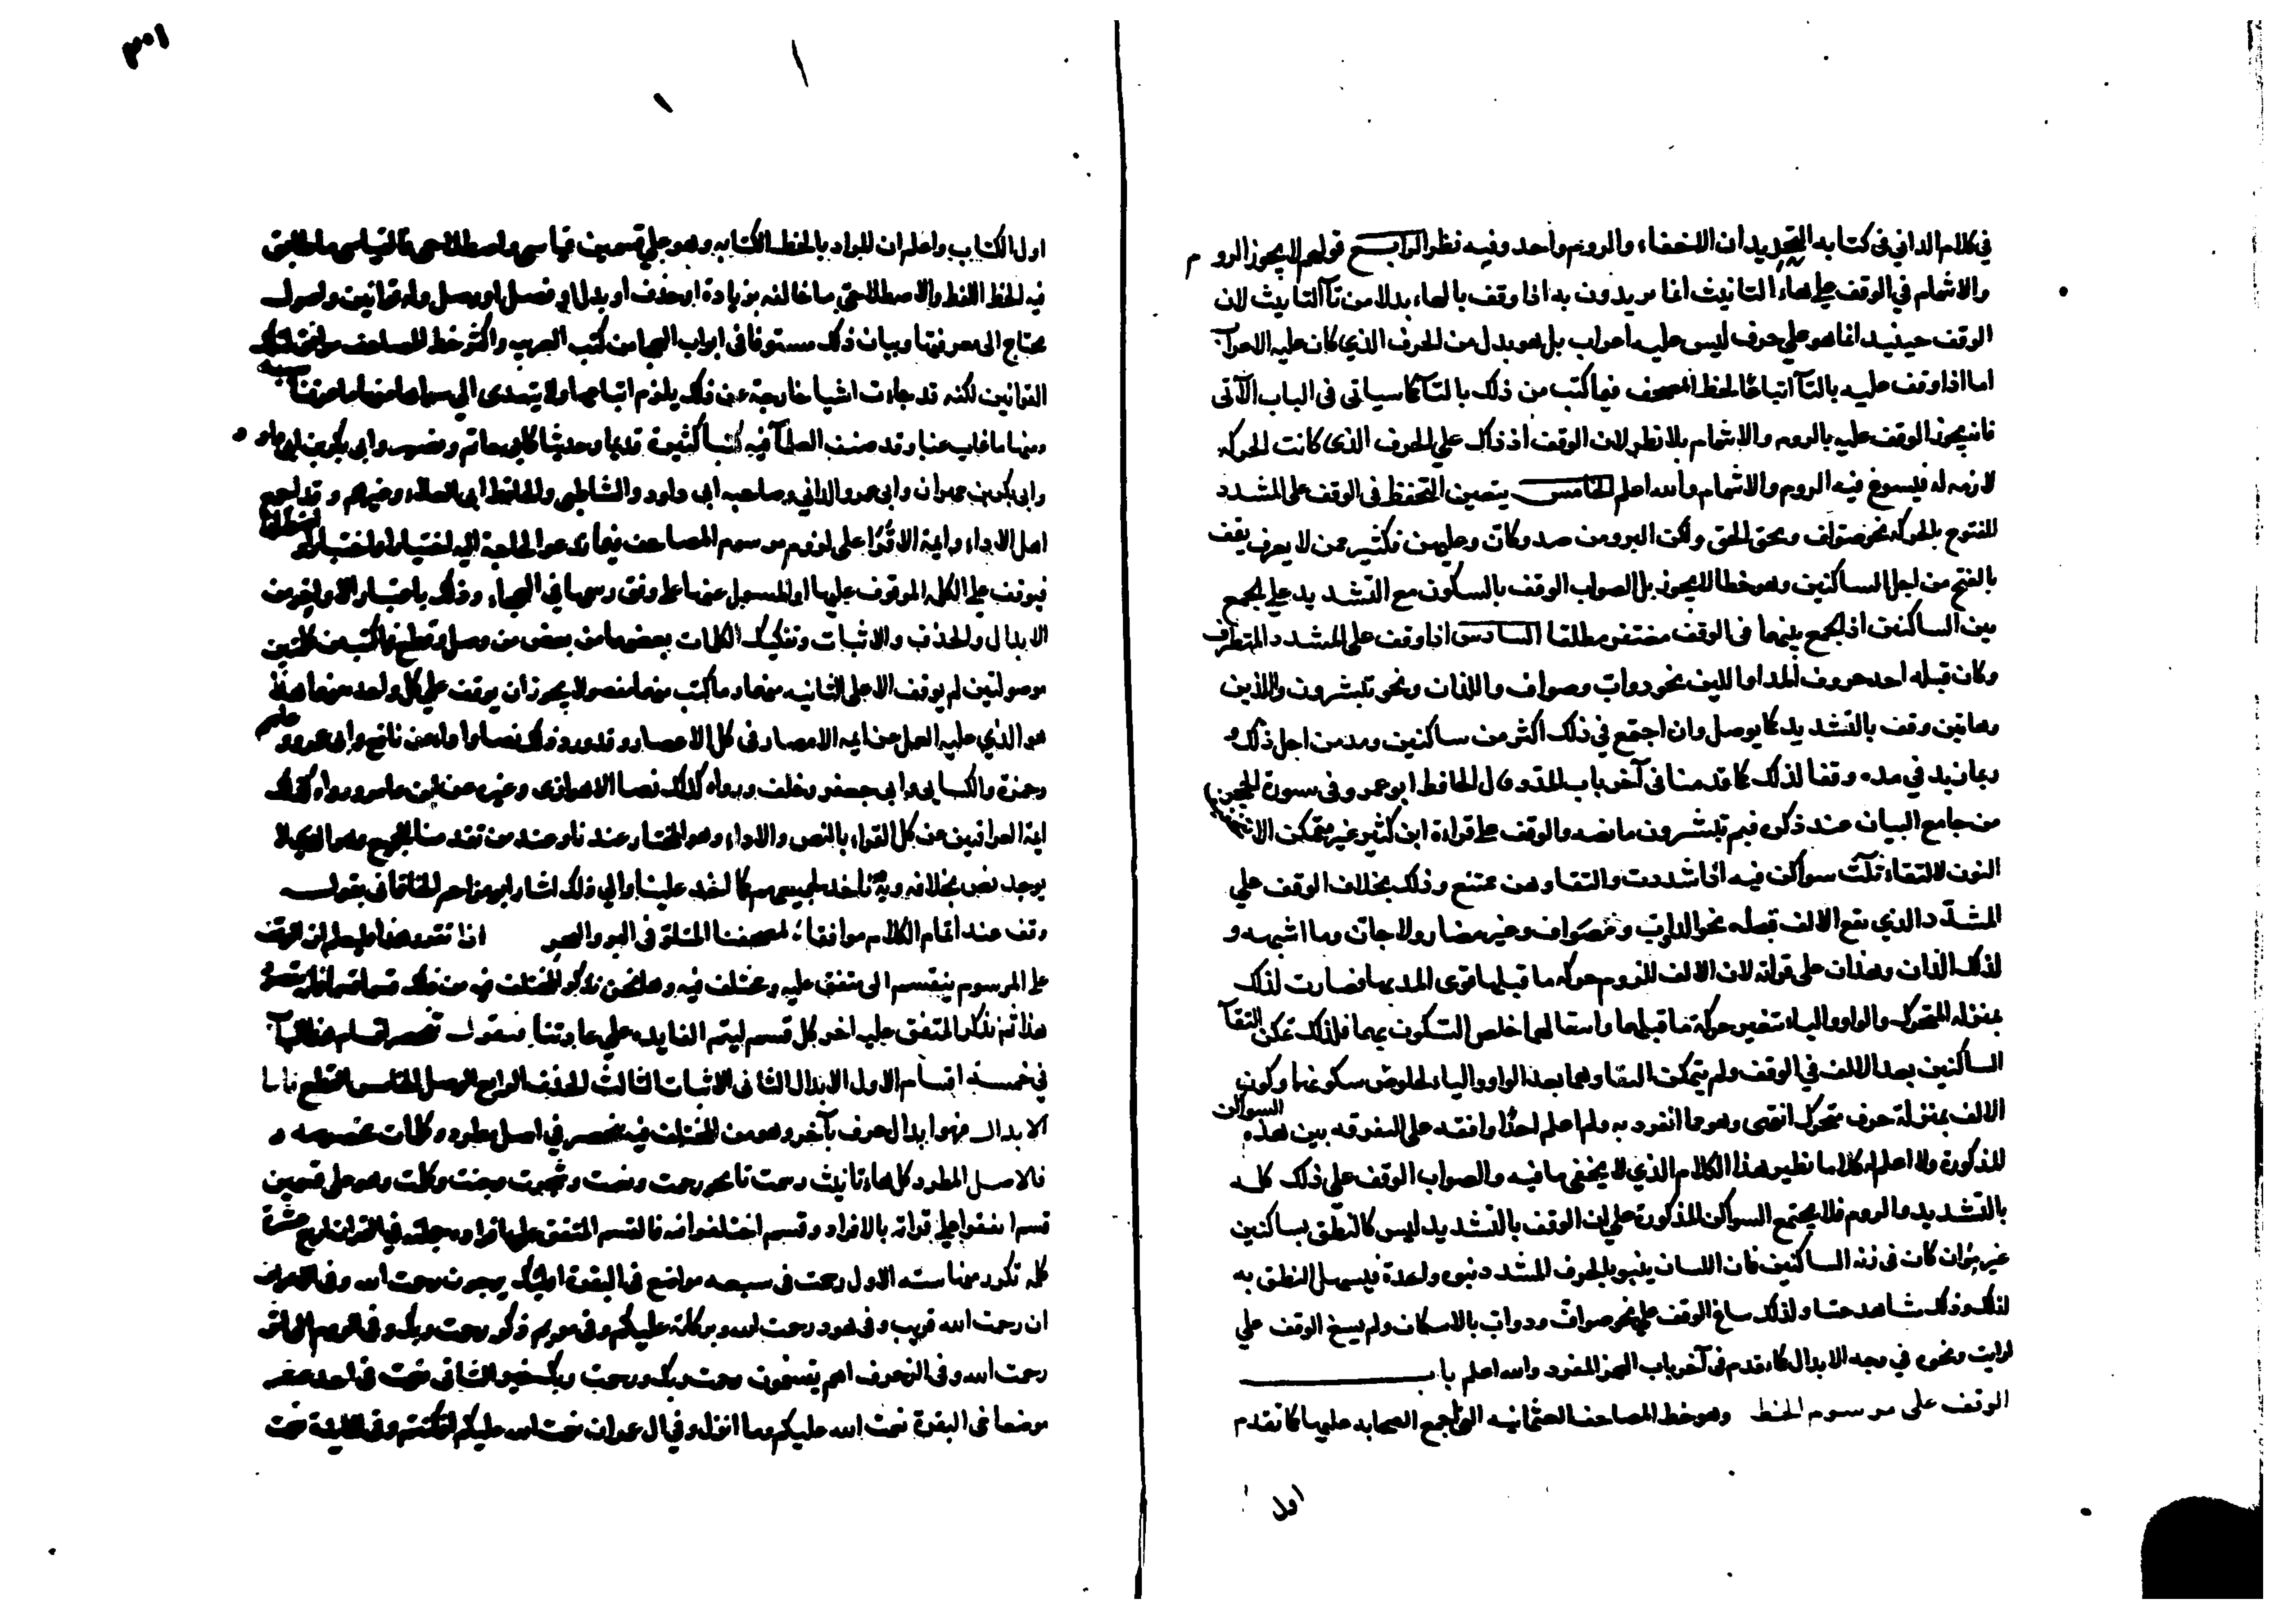 في كلام الداني في كتابه التجريد ان الاخفاء والروم واحد وفيه نظر الرابع قولهم لا يجوز الروم
والاشمام في الوقف على هاء التانيث انما يريدون به اذا وقف بالهاء بدلا من تآ التانيث لان
الوقف حينيد انما هو على حرف ليس عليه اعراب بل هو بدل من الحرف الذي كان عليه الاعراب
اما اذا وقف عليه بالتآ اتباعا لخط المصحف فيما كتب من ذلك بالتآ كما سياتي في الباب الآتي
فانه يجوز الوقف عليه بالروم والاشمام بلا نظر لان الوقف اذ ذاك على الحرف الذي كانت الحركه
لازمه له فيسوغ فيه الروم والاشمام والله اعلم الخامس يتعين التحفظ في الوقف على المشدد
المفتوح بالحركه نحو صواف ويحق الحق ولكن البر ومن صد وكان وعليهن فكثير ممن لا يعرف يقف
بالفتح من اجل الساكنين وهو خطا لا يجوز بل الصواب الوقف بالسكون مع التشديد على الجمع
بين الساكنين اذ الجمع بينهما في الوقف مغتفر مطلقا السادس اذا وقف على المشدد المتطرف
وكان قبله احد حروف المد او اللين نحو دواب وصواف واللذان ونحو تبشرون واللذين
وهاتين وقف بالتشديد كما يوصل وان اجتمع في ذلك اكثر من ساكنين ومد من اجل ذلك و
ربما زيد في مده وقفا لذلك كما قدمنا في آخر باب المد وقال الحافظ ابو عمرو في سورة الحجر
من جامع البيان عند ذكره فبم تبشرون ما نصه والوقف على قراءة ابن كثير غير متمكن الا بتخفيف
النون لالتقاء ثلث سواكن فيه اذا شددت والتقاوهن ممتنع وذلك بخلاف الوقف علي
المشدد الذي يقع الالف قبله نحو الدواب وصواف وغير مضار ولا جان وما اشبهه و
لذلك اللذان وهذان على قراته لان الالف للزوم حركه ما قبلها قوى المد بها فصارت لذلك
بمنزله المتحرك والواو والياء بتغير حركة ما قبلهما وانتقالهما خلص السكون بهما فلذلك تمكن التقآ
الساكنين بعد الالف في الوقف ولم يتمكن التقاوهما بعد الواو والياء لخلوص سكونهما وكون
الالف بمنزلة حرف متحرك انتهى وهو مما انفرد به ولم اعلم احدا وافقه على التفرقه بين هذه السواكن
المذكورة ولا اعلم له كلاما نظير هذا الكلام الذي لا يخفى ما فيه والصواب الوقف على ذلك كله
بالتشديد والروم فلا يجتمع السواكن المذكورة على ان الوقف بالتشديد ليس كالنطق بساكنين
غيره وان كان في زنه الساكنين فان اللسان ينبو بالحرف المشدد نبوه واحدة فيسهل النطق به
لذلك وذلك مشاهد حسا ولذلك ساغ الوقف على نحو صواف ودواب بالاسكان ولم يسغ الوقف علي
ارايت ونحوه في وجه الابدال كما تقدم في آخر باب الهمز المفرد والله اعلم باب
الوقف على مرسوم الخط وهو خط المصاحف العثمانيه التي اجمع الصحابه عليها كما تقدم
اول
٣٠١
اول الكتاب واعلم ان المراد بالخط الكتابه وهو على قسمين قياسي واصطلاحي فالقياسي ما طابق
فيه الخط اللفظ والاصطلاحي ما خالفه بزيادة او حذف او بدل او فصل او وصل وله قوانين واصول
يحتاج الى معرفتها وبيان ذلك مستوفا في ابواب الهجا من كتب العربيه واكثر خط المصاحف موافق لتلك
القوانين لكنه قد جاءت اشيا خارجة عن ذلك يلزم اتباعها ولا يتعدى الى سواها منها ما عرفنا سببه
ومنها ما غاب عنا وقد صنف العلمآ فيه كتبا كثيرة قديما وحديثا كابي حاتم ونصير وابي بكر بن ابي داود
وابي بكر بن مهران وابي عمرو الداني وصاحبه ابي داود والشاطبي والحافظ ابي العلاء وغيرهم وقد اجمع
اهل الاداء وايمة الاقرا على لزوم مرسوم المصاحف فيما تدعوا الحاجة اليه اختيارا واضطرارا
فيوقف على الكلمه الموقوف عليها او المسول عنها على وفق رسمها في الهجاء وذلك باعتبار الاواخر من
الابدال والحذف والاثبات وتفكيك الكلمات بعضها من بعض من وصل وقطع فما كتب من كلمتين
موصولتين لم يوقف الا على الثانيه منهما وما كتب منهما مفصولا يجوز ان يوقف على كل واحد منهما هذا
هو الذي عليه العمل عن ايمه الامصار في كل الاعصار وقد ورد ذلك نصا واداء عن نافع وابي عمرو وعاصم
وحمزة والكسايي وابي جعفر وخلف ورواه كذلك نصا الاهوازي وغيره عن ابن عامر ورواه كذلك
ايمة العراقيين عن كل القراء بالنص والاداء وهو المختار عندنا وعند من تقدمنا للجميع وهو الذي لا
يوجد نص بخلافه وبه ناخذ لجميعهم كما اخذ علينا والي ذلك اشار ابو مزاحم الخاقاني بقوله
وقف عند اتمام الكلام موافقا لمصحفنا المتلو في البر والبحر اذا تقرر هذا فليعلم ان الوقف
على المرسوم ينقسم الى متفق عليه ومختلف فيه وها نحن نذكر المختلف فيه من ذلك قسما قسما
هذا ثم نذكر المتفق عليه اخر كل قسم ليتم الفايده على عادتنا فنقول تنحصر اقسام هذا الباب
في خمسة اقسام الاول الابدال الثاني الاثبات الثالث الحذف الرابع الوصل الخامس القطع فاما
الابدال فهو ابدال حرف بآخر وهو من المختلف فيه ينحصر في اصل مطرد وكلمات مخصوصه و
فالاصل المطرد كل هاء تانيث رسمت تا نحو رحمت ونعمت وشجرت وجنت وكلمت وهو على قسمين
قسم اتفقوا على قراته بالافراد وقسم اختلفوا فيه فالقسم المتفق على افراده جملته في القران اربع عشرة
كلمه تكرر منها سته الاول رحمت في سبعه مواضع في البقرة اوليك يرجون رحمت الله وفي الاعراف
ان رحمت الله قريب وفي هود رحمت الله وبركاته عليكم وفي مريم ذكر رحمت ربك وفي الروم الى اثر
رحمت الله وفي الزخرف اهم يقسمون رحمت ربك ورحمت ربك خير الثاني نعمت في احد عشر
موضعا في البقرة نعمت الله عليكم وما انزل وفي ال عمران نعمت الله عليكم اذ كنتم وفي المايدة نعمت